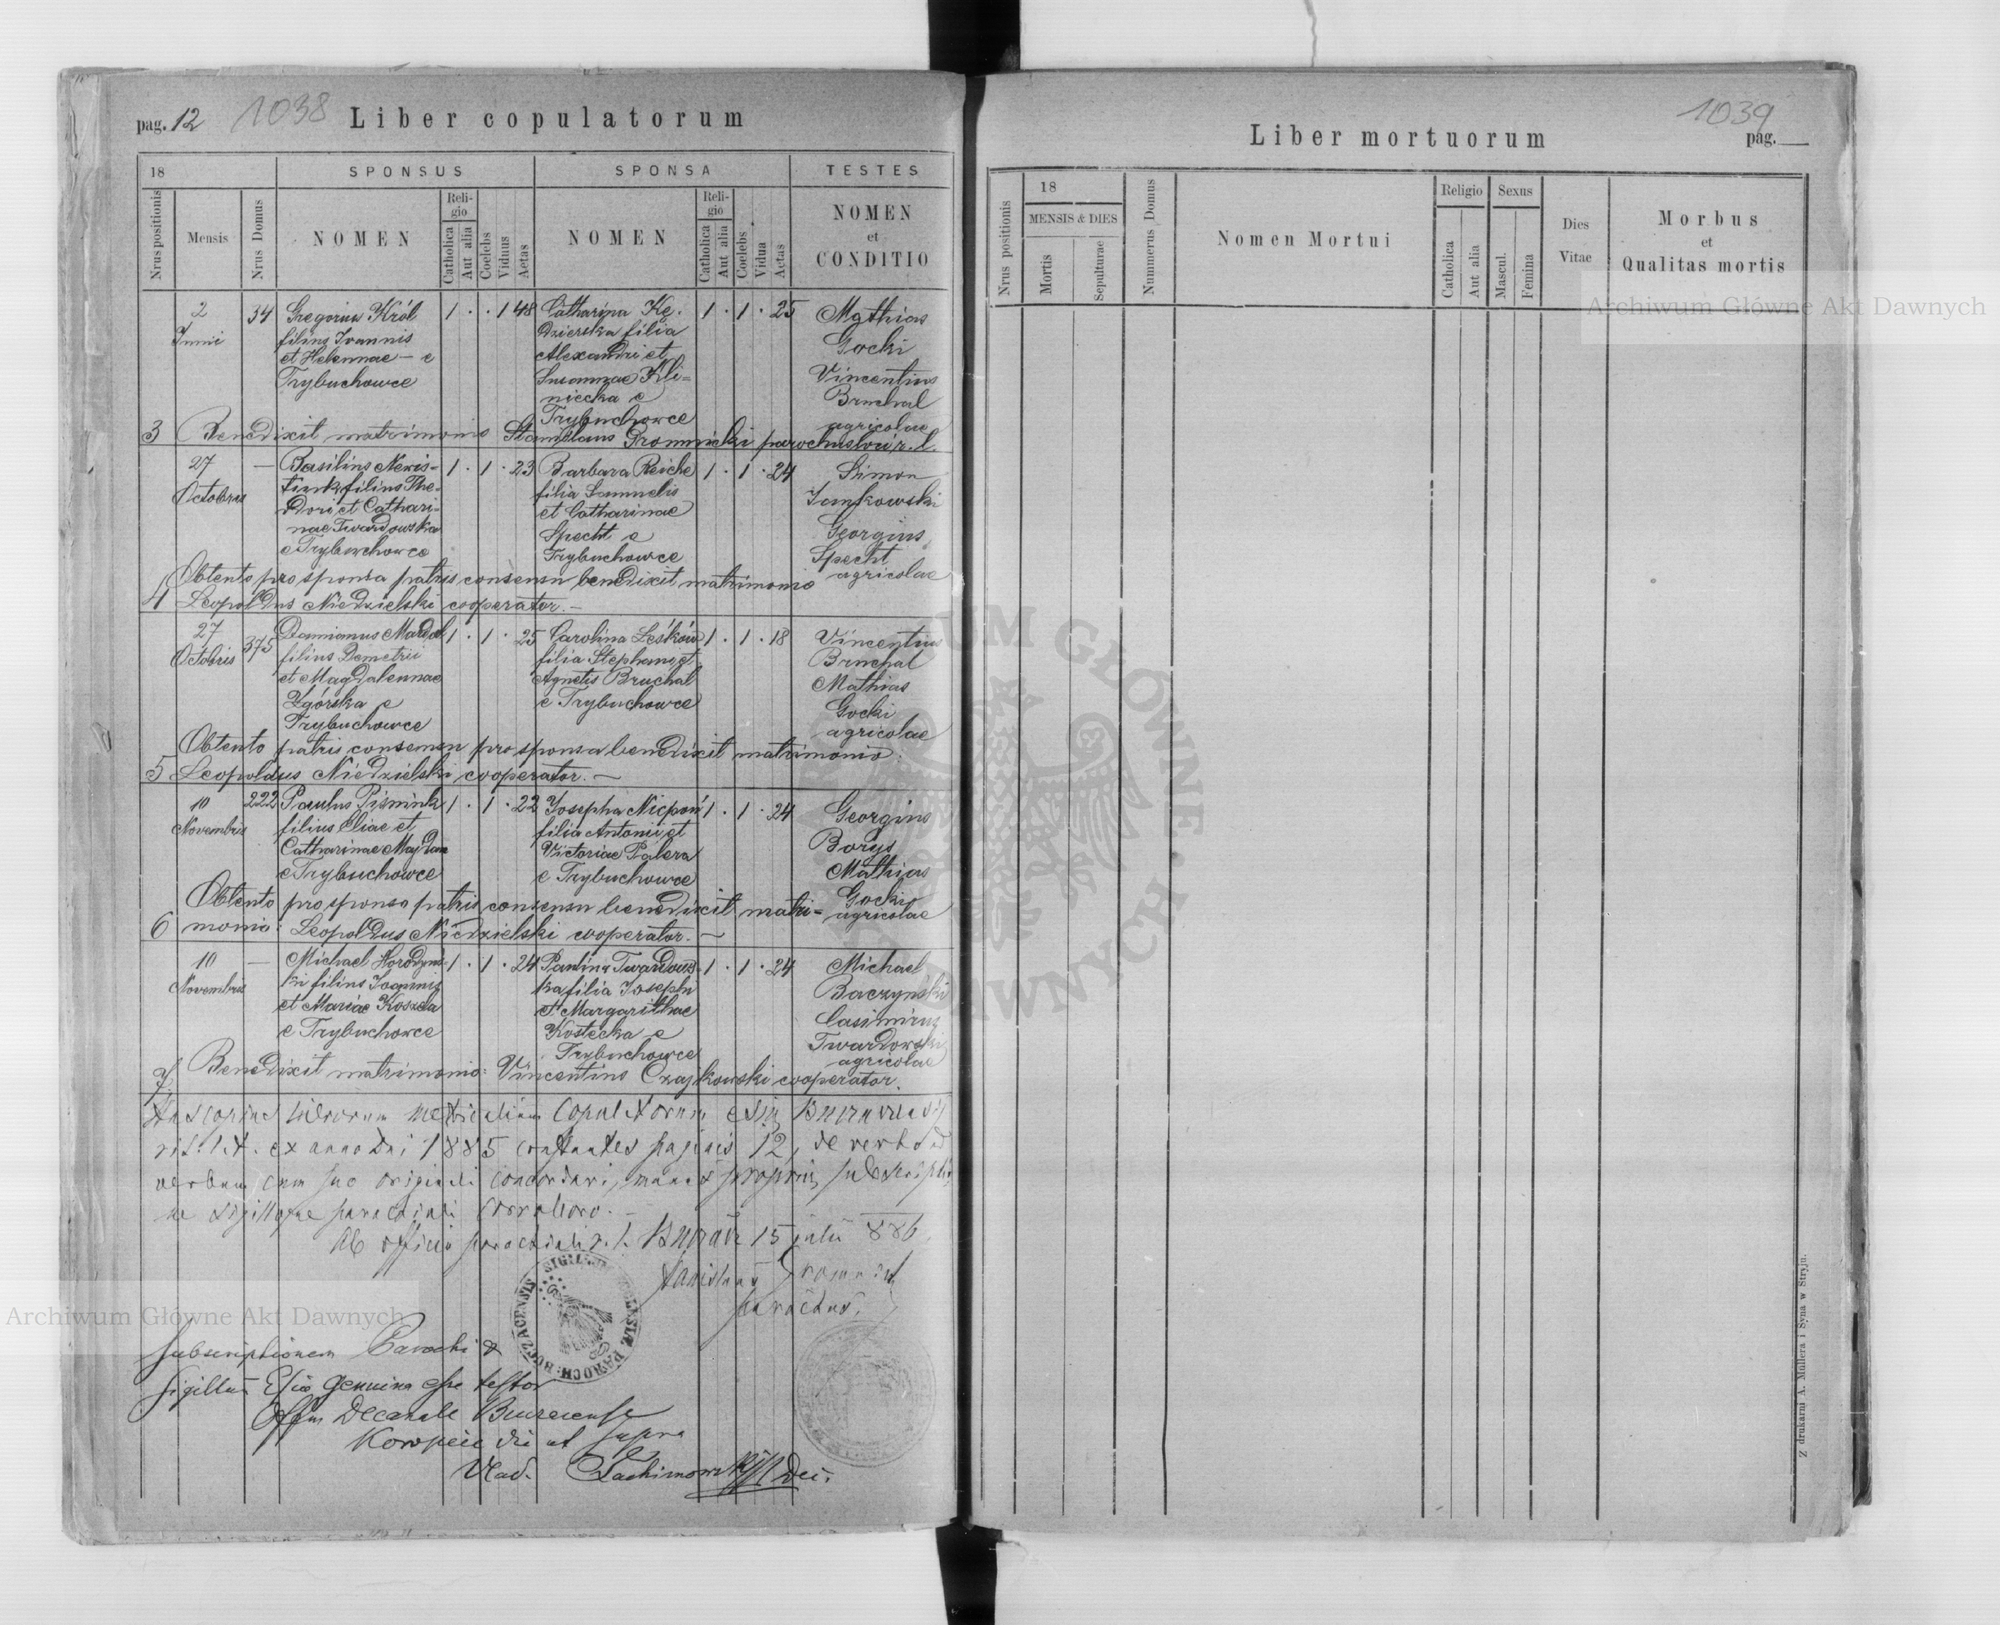 pag. 12
1038
Liber copulatorum
18
SPONSUS
SPONSA
TESTES
Nrus positionis
Mensis
Nrus Domus
NOMEN
Reli-
gio
Catholica
Aut alia
Coelebs
Viduus
Aetas
NOMEN
Reli-
gio
Catholica
Aut alia
Coelebs
Vidua
Aetas
NOMEN
et
CONDITIO
3
2
Junii
34
Gregorius Król
filius Joannis
et Helennae – e
Trybuchowce
1 . . 1 48
Catharina Kę-
dzierska filia
Alexandri et
Susannae Kli=
niecka e
Trybuchowce
1 . 1 . 25
Mathias
Gocki
Vincentius
Bruchal
agricolae
Benedixit matrimonio Stanislaus Gromnicki parochus loci r. l.
4
27
Octobris
—
Basilius
filius The-
dori et Cathari-
nae Twardowska
e Trybuchowce
1 . 1 . 23
Barbara Reiche
filia Samuelis
et Catharinae
Specht e
Trybuchowce
1 . 1 . 24
Simon
Jankowski
Georgius
Specht
agricolae
Obtento pro sponsa patris consensu benedixit matrimonio
Leopoldus Niedzielski cooperator. –
5
27
Octobris
375
Damianus
filius Demetrii
et Magdalennae
Zgórska e
Trybuchowce
1 . 1 . 25
Carolina Leśków
filia Stephani et
Agnetis Bruchal
e Trybuchowce
1 . 1 . 18
Vincentius
Bruchal
Mathias
Gocki
agricolae
Obtento patris consensu pro sponsa benedixit matrimonio:
Leopoldus Niedzielski cooperator. –
6
10
Novembris
222
Paulus
filius Eliae et
Catharinae Majdan
e Trybuchowce
1 . 1 . 22
Josepha Nicpoń
filia Antonii et
Victoriae Palera
e Trybuchowce
1 . 1 . 24
Georgius
Borys
Mathias
Gocki
agricolae
Obtento pro sponso patris consensu benedixit matri=
monio: Leopoldus Niedzielski cooperator. –
7
10
Novembris
—
Michael Horodyns
ki filius Joannis
et Mariae Koszela
e Trybuchowce
1 . 1 . 24
Paulina Twardows
ka filia Joseph
et Margarithae
Kostecka e
Trybuchowce
1 . 1 . 24
Michael
Baczyński
Casimirus
Twardowski
agricolae
Benedixit matrimonio: Vincentius Czajkowski cooperator.
Has copias librorum metricalium Copulatorum
rit. lat. ex anno Dni 1885 constantes paginis 12, de verbo ad
verbum cum suo originali concordari, manus propriae subscriptio
ne sigilloque parochiali corroboro. –
Ab officio parochiali r. l. 15 julii 886.
Stanislaus Gromnicki
parochus.
Subscriptionem Parochi &
sigillum Eccliae genuina esse testor
Offm Decanale Buczacense
Koropiec die ut supra
Vlad.
Dec.
Archiwum Główne Akt Dawnych
1039
Liber mortuorum
pag.
Nrus positionis
18
MENSIS & DIES
Mortis
Sepulturae
Nummerus Domus
Nomen Mortui
Religio
Catholica
Aut alia
Sexus
Mascul.
Femina
Dies
Vitae
Morbus
et
Qualitas mortis
Archiwum Główne Akt Dawnych
Z drukarni A. Müllera i Syna w Stryju.